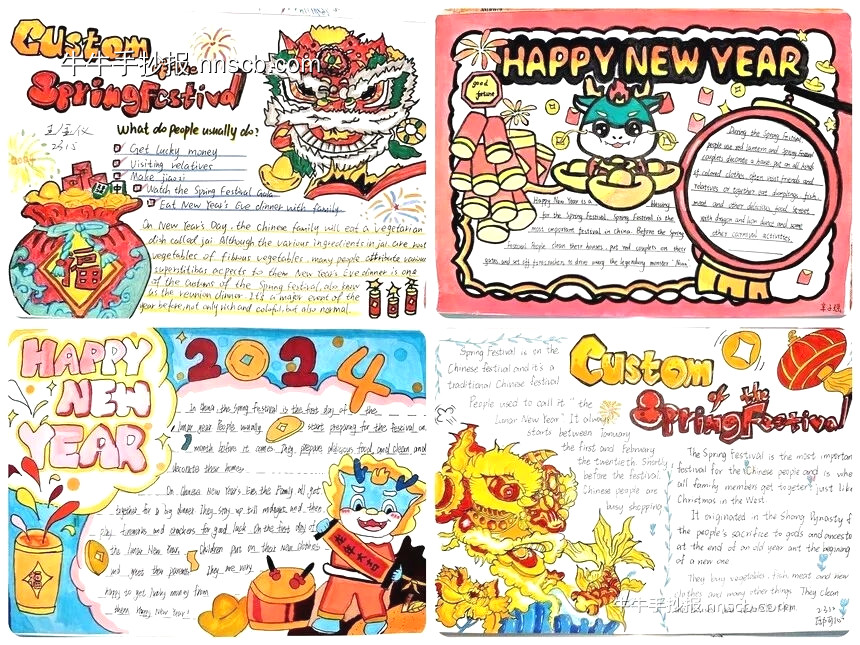 Custom
of the
Spring Festival
牛牛手抄报 nnscb.com
What do people usually do?
Get lucky money
Visiting relatives
Make jiaozi
Watch the Spring Festival Gala
Eat New Year's Eve dinner with family
On New Year's Day, the Chinese family will eat a vegetarian
dish called jai. Although the various ingredients in jai are root
vegetables of fibrous vegetables, many people attribute various
superstitious aspects to them New Year's Eve dinner is one
of the customs of the Spring Festival, also know
as the reunion dinner. It's a major event of the
year before, not only rich and colorful, but also normal.
福
HAPPY NEW YEAR
good
fortune
During the Spring Festival,
people use red lantern and Spring Festival
couplets decorate a house put on all kind
of colored clothes, often visit friends and
relatives or together eat dumplings, fish,
meat and other delicious food
with dragon and lion dance and some
other carnival activities.
Happy New Year is a blessing
for the Spring Festival. Spring Festival is the
most important festival in China. Before the Spring
Festival People clean their houses, put red couplets on their
gates and set off firecrackers to drive away the legendary monster "Nian"
HAPPY
NEW
YEAR
2024
In China, the Spring Festival is the first day of the
lunar year People usually start preparing for the festival on
month before it comes They prepare delicious food, and clean and
decorate these homes.
On Chinese New Year's Eve, the family all get
together for a big dinner They stay up till midnight and then
play fireworks and crackers for good luck On the first day of
the lunar New Year, Children put on their new clothes
and greet their parents They are very
happy to get lucky money from
them Happy New Year!
Spring Festival is on the
Chinese festival and it's a
traditional Chinese festival
People used to call it "the
Lunar New Year" It always
starts between January
the first and February
the twentieth. Shortly
before the festival
Chinese people are
busy shopping
Custom
of the
Spring Festival
The Spring Festival is the most important
festival for the Chinese people and is when
all family members get together just like
Christmas in the West.
It originated in the Shang Dynasty f
the people's sacrifice to gods and ancestors
at the end of an old year and the beginning
of a new one
They buy vegetables, fish meat and new
clothes and many other things They clean
牛牛手抄报 nnscb.com